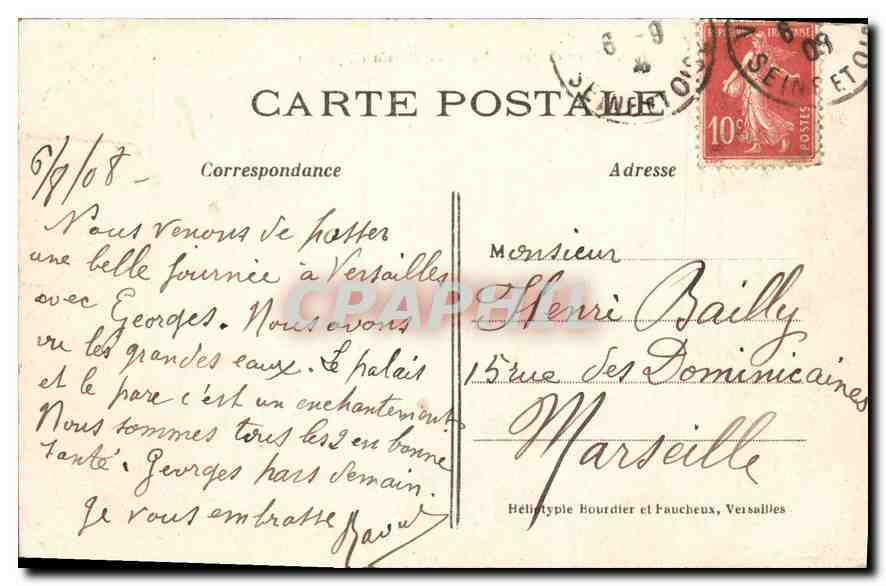 6 - 9
SEINE-ET-OISE
REPUBLIQUE FRANCAISE
6
09
SEINE ET OISE
10c
POSTES
CARTE POSTALE
Correspondance
Adresse
6/9/08 -
Nous venons de passer
une belle journée à Versailles
avec Georges. Nous avons
vu les grandes eaux. Le palais
et le parc c'est un enchantement
Nous sommes tous les 2 en bonne
santé. Georges part demain.
Je vous embrasse
Raoul
Monsieur
Henri Bailly
15 rue des Dominicaines
Marseille
CPAPHIL
Héliotypie Bourdier et Faucheux, Versailles